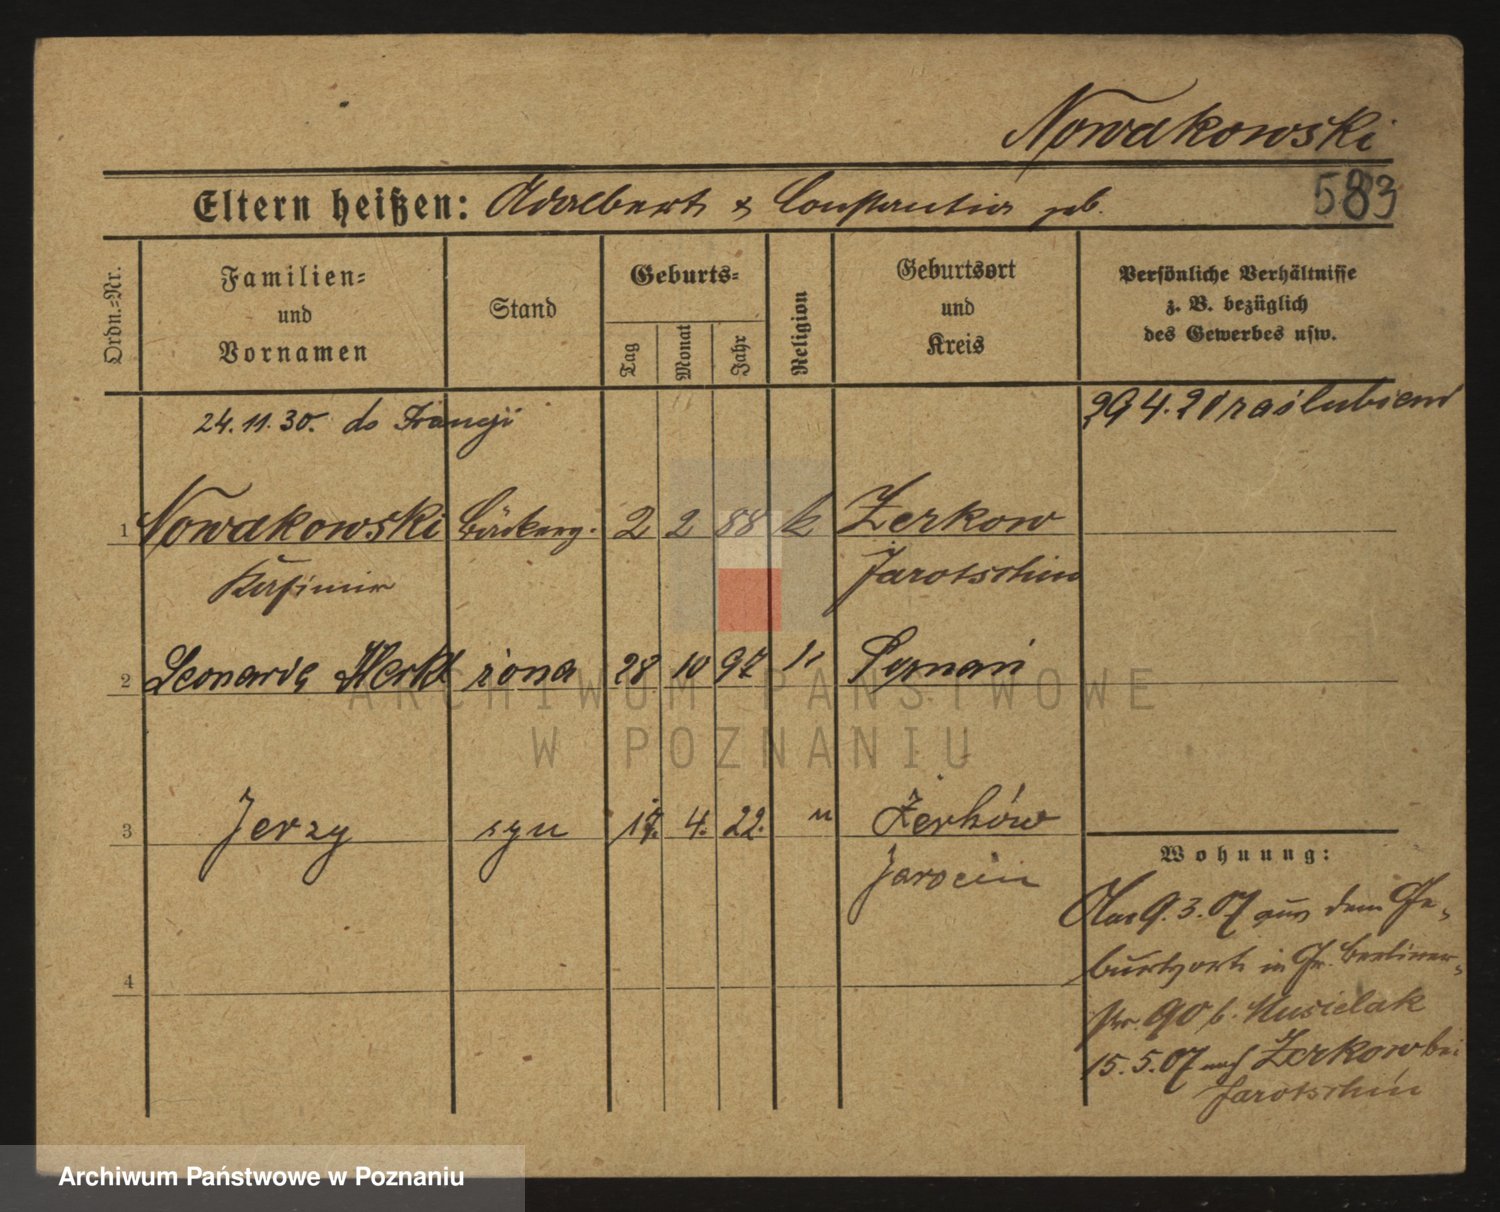 Nowakowski
583
Eltern heißen: Adalbert & Constantia geb.
Ordn.=Nr.
Familien=
und
Vornamen
Stand
Geburts=
Tag
Monat
Jahr
Religion
Geburtsort
und
Kreis
Persönliche Verhältnisse
z. B. bezüglich
des Gewerbes usw.
24.11.30. do Francji
29 4. 21 zaślubieni
1 Nowakowski Bäckerg. 2 2 88 k Zerkow
Kasimir Jarotschin
2 Leonarda żona 28 10 97 Poznań
3 Jerzy syn 17. 4. 22. " Żerków
Jarocin
4
Wohnung:
9. 3. 07 aus dem Ge-
burtsort in Gr. Berliner-
str. 90 b. Musielak
15. 5. 07 nach Zerkow bei
Jarotschin
ARCHIWUM PAŃSTWOWE
W POZNANIU
Archiwum Państwowe w Poznaniu